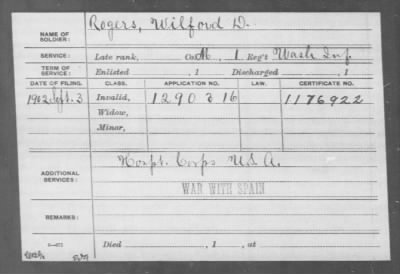 NAME OF SOLDIER: Rogers, Wilford D.
SERVICE: Late rank, Co. M, 1 Reg't Wash Inf.
TERM OF SERVICE: Enlisted , 1 Discharged , 1
DATE OF FILING. CLASS. APPLICATION NO. LAW. CERTIFICATE NO.
1902 Sept. 3 Invalid, 1290316 1176922
Widow,
Minor,
ADDITIONAL SERVICES: Hospt. Corps U.S.A.
WAR WITH SPAIN
REMARKS:
Died , 1 , at